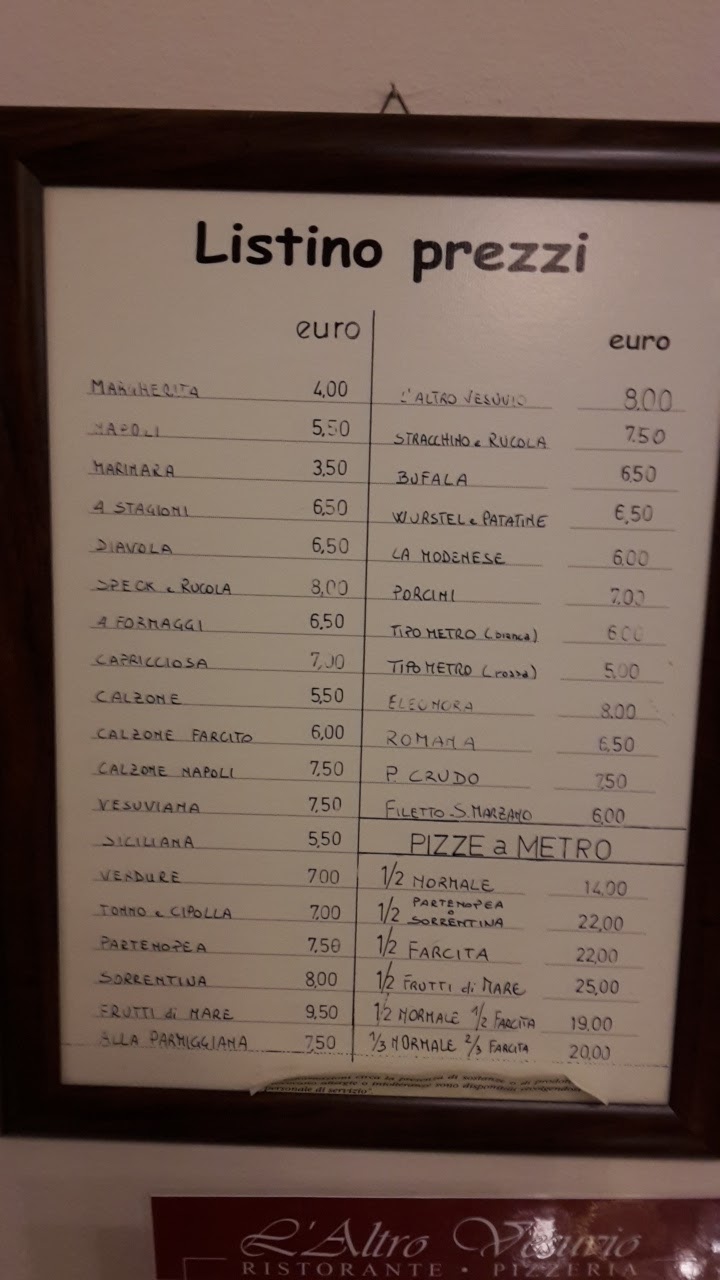 Listino prezzi
euro
MARGHERITA 4,00
NAPOLI 5,50
MARINARA 3,50
4 STAGIONI 6,50
DIAVOLA 6,50
SPECK e RUCOLA 8,00
4 FORMAGGI 6,50
CAPRICCIOSA 7,00
CALZONE 5,50
CALZONE FARCITO 6,00
CALZONE NAPOLI 7,50
VESUVIANA 7,50
SICILIANA 5,50
VERDURE 7,00
TONNO e CIPOLLA 7,00
PARTENOPEA 7,50
SORRENTINA 8,00
FRUTTI di MARE 9,50
ALLA PARMIGGIANA 7,50
euro
L'ALTRO VESUVIO 8,00
STRACCHINO e RUCOLA 7,50
BUFALA 6,50
WURSTEL e PATATINE 6,50
LA MODENESE 6,00
PORCINI 7,00
TIPO METRO (bianca) 6,00
TIPO METRO (rossa) 5,00
ELEONORA 8,00
ROMANA 6,50
P. CRUDO 7,50
FILETTO S. MARZANO 6,00
PIZZE a METRO
1/2 NORMALE 14,00
1/2 PARTENOPEA o SORRENTINA 22,00
1/2 FARCITA 22,00
1/2 FRUTTI di MARE 25,00
1/2 NORMALE 1/2 FARCITA 19,00
1/3 NORMALE 2/3 FARCITA 20,00
circa la presenza di sostanze o di prodotti
allergie o intolleranze sono disponibili rivolgendosi
personale di servizio".
L'Altro Vesuvio
RISTORANTE • PIZZERIA